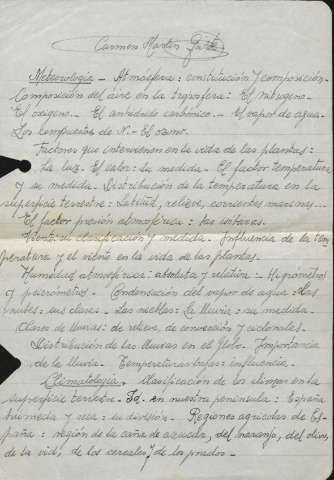 Carmen Martín Gaite
Meteorología - Atmósfera: constitución y composición.
Composición del aire en la troposfera: El nitrógeno.
El oxígeno. - El anhídrido carbónico. - El vapor de agua.
Los compuestos de N. - El ozono.
Factores que intervienen en la vida de las plantas:
La luz. El calor: su medida. El factor temperatura
y su medida. Distribución de la temperatura en la
superficie terrestre: Latitud, relieve, corrientes marinas. -
El factor presión atmosférica: las isobaras.
Viento: su clasificación y medida. Influencia de la tem
peratura y el viento en la vida de las plantas.
Humedad atmosférica: absoluta y relativa. - Higrómetros
y psicrómetros. - Condensación del vapor de agua: Las
nubes: sus clases. - Las nieblas: La lluvia: su medida.
Clases de lluvias: de relieve, de convección y ciclonales.
Distribución de las lluvias en el Globo. Importancia
de la lluvia. Temperaturas bajas: influencia.
Climatología. Clasificación de los climas en la
superficie terrestre. Id. en nuestra península: España
húmeda y seca: su división. - Regiones agrícolas de Es-
paña: región de la caña de azúcar, del naranjo, del olivo,
de la vid, de los cereales y de los prados. -